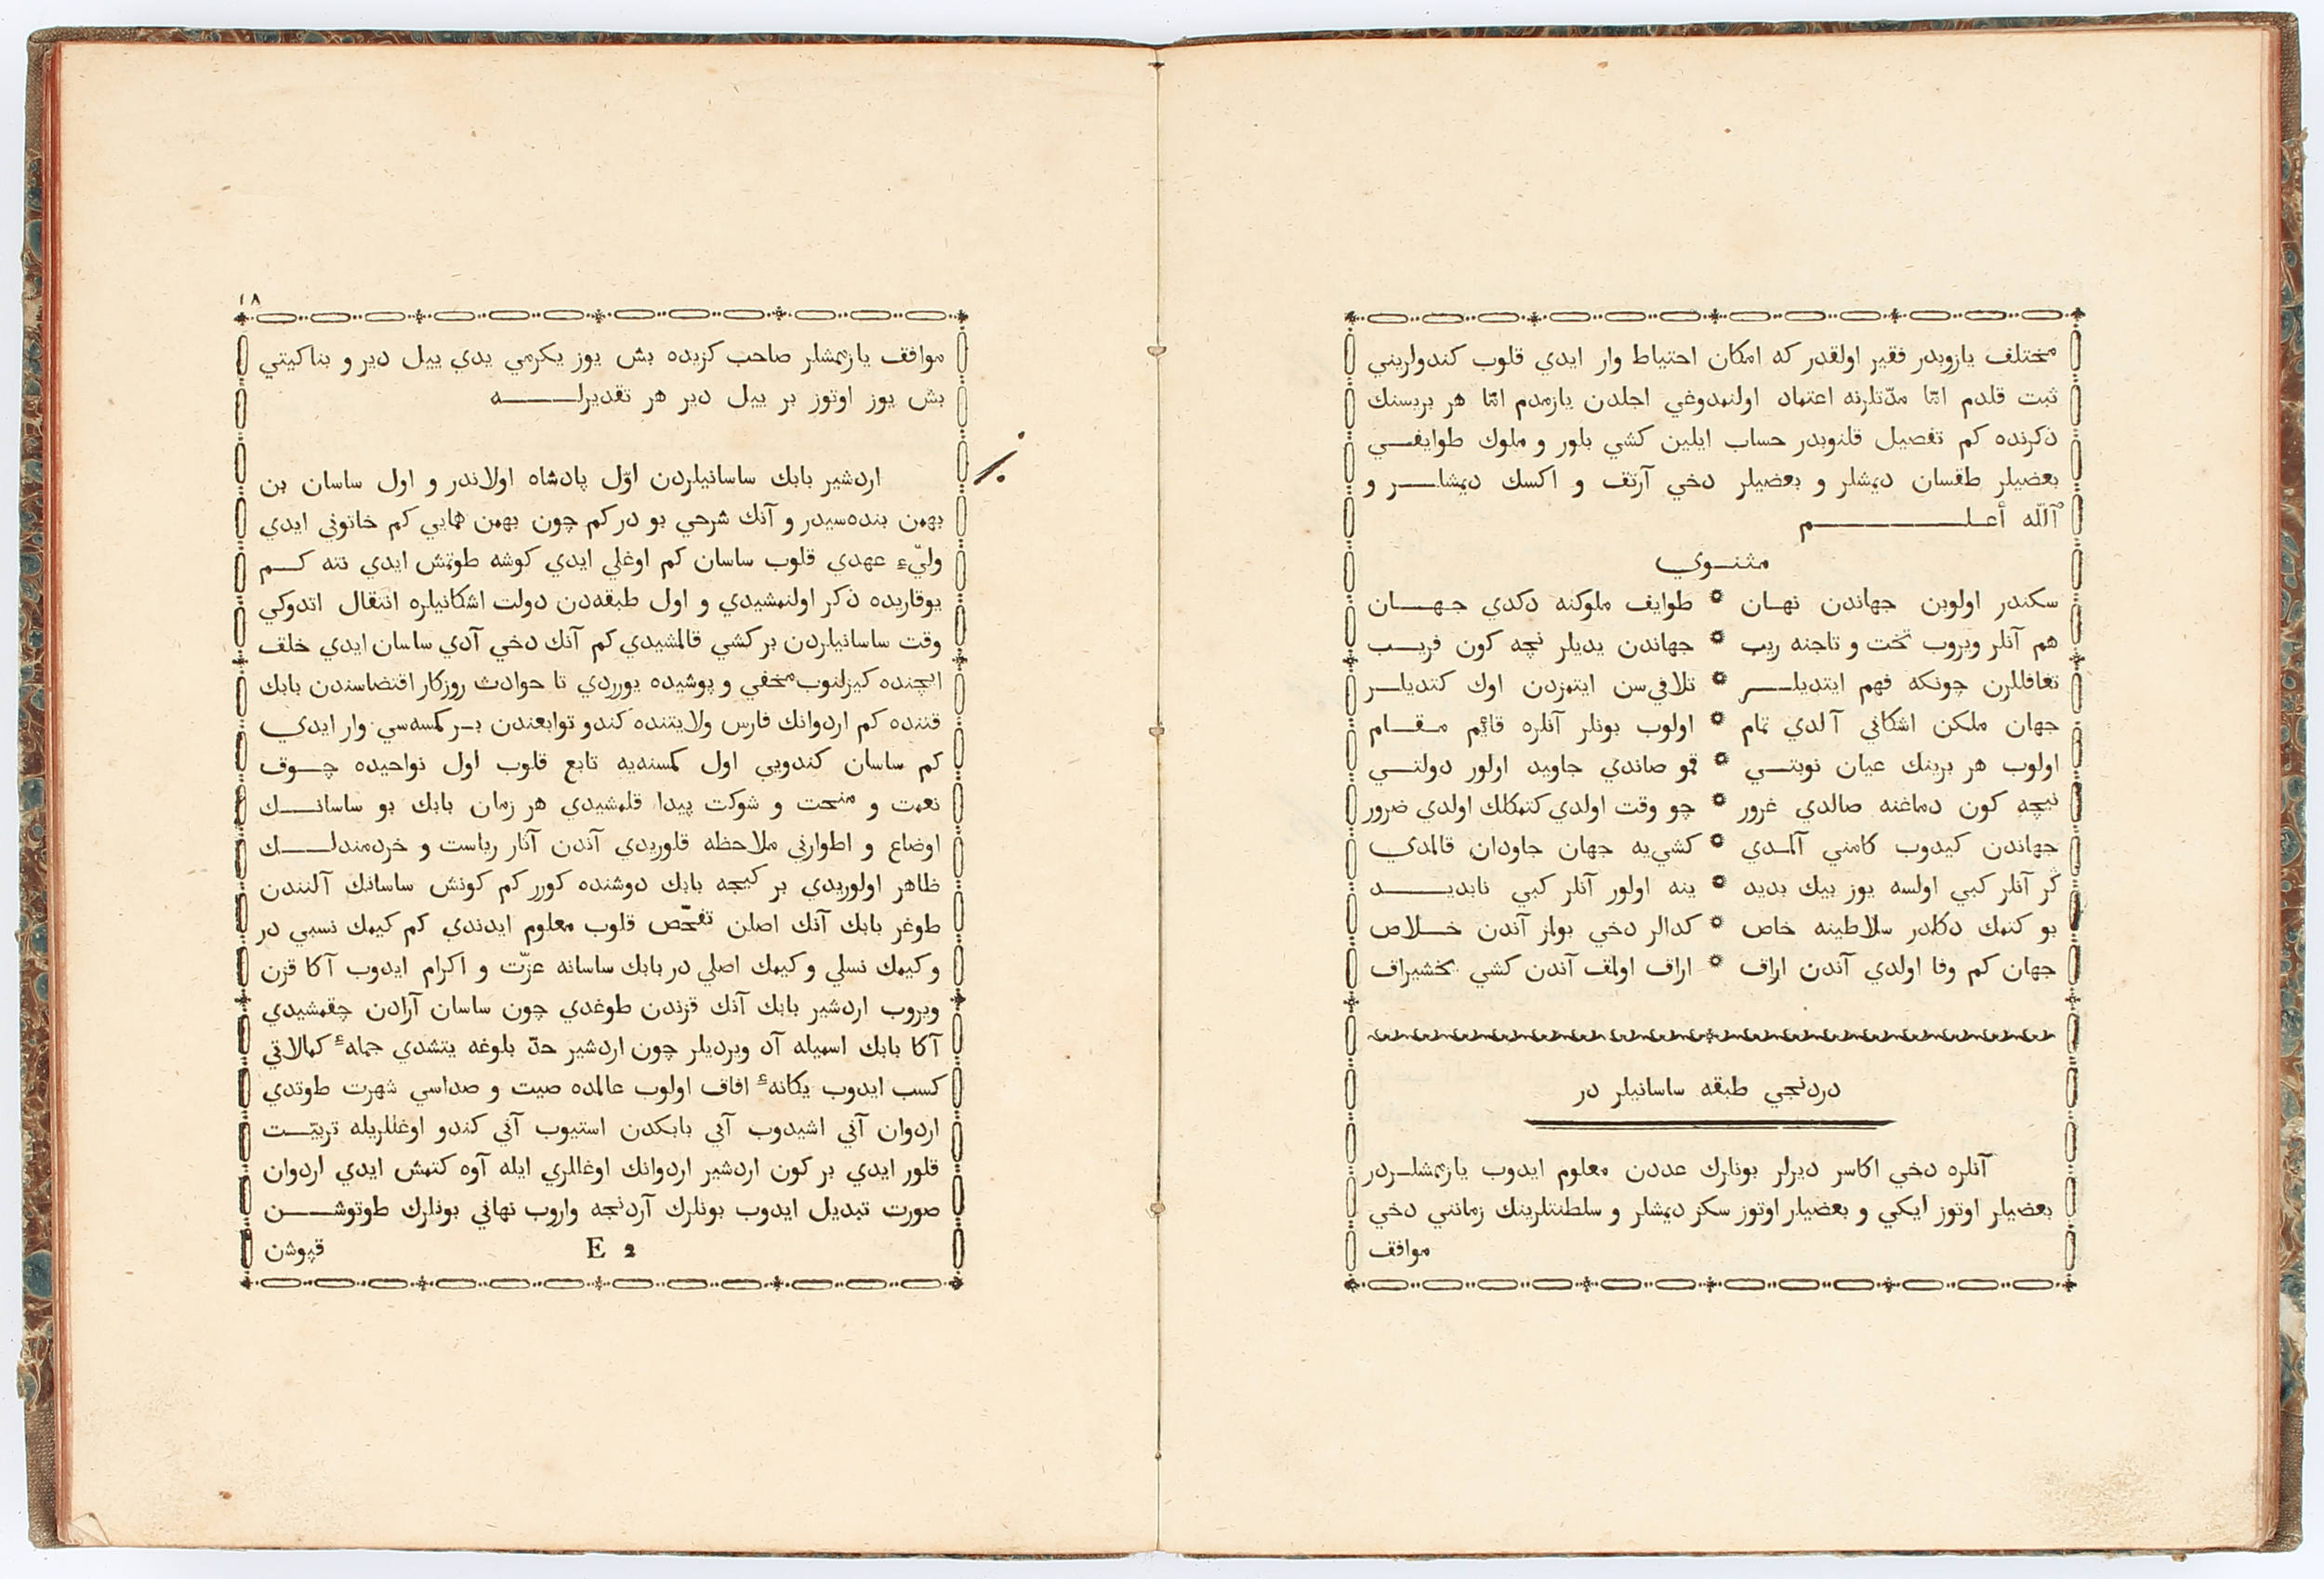 مختلف يازوبدر فقير اولقدر كه امكان احتياط وار ايدي قلوب كندولريني
ثبت قلدم امّا مدّتلرنه اعتماد اولنمدوغي اجلدن يازمدم امّا هر بريسنك
ذكرنده كم تفصيل قلنوبدر حساب ايلين كشي بلور و ملوك طوايفي
بعضيلر طقسان ديمشلر و بعضيلر دخي آرتق و اكسك ديمشلر و
آللّه أعلم
مثنوي
سكندر اولوبن جهاندن نهان * طوايف ملوكنه دكدي جهان
هم آنلر ويروب تخت و تاجنه زيب * جهاندن يديلر نچه كون فريب
تغافللرن چونكه فهم ايتديلر * تلافي‌سن ايتمزدن اوك كتديلر
جهان ملكن اشكاني آلدي تمام * اولوب بونلر آنلره قائم مقام
اولوب هر برينك عيان نوبتي * قمو صاندي جاويد اولور دولتي
نيچه كون دماغنه صالدي غرور * چو وقت اولدي كتمكلك اولدي ضرور
جهاندن كيدوب كامني آلمدي * كشي‌يه جهان جاودان قالمدي
كر آنلر كبي اولسه يوز بيك بديد * ينه اولور آنلر كبي نابديد
بو كتمك دكلدر سلاطينه خاص * كدالر دخي بولمز آندن خلاص
جهان كم وفا اولدي آندن اراق * اراق اولمق آندن كشي يخشيراق
دردنجي طبقه ساسانيلر در
آنلره دخي اكاسر ديرلر بونلرك عددن معلوم ايدوب يازمشلردر
بعضيلر اوتوز ايكي و بعضيلر اوتوز سكز ديمشلر و سلطنتلرينك زمانني دخي
موافق
١٨
موافق يازمشلر صاحب كزيده بش يوز يكرمي يدي ييل دير و بناكيتي
بش يوز اوتوز بر ييل دير هر تقديرله
اردشير بابك ساسانيلردن اوّل پادشاه اولاندر و اول ساسان بن
بهمن بنده‌سيدر و آنك شرحي بو در كم چون بهمن همايي كم خاتوني ايدي
وليّء عهدي قلوب ساسان كم اوغلي ايدي كوشه طوتمش ايدي نته كم
يوقاريده ذكر اولنمشيدي و اول طبقه‌دن دولت اشكانيلره انتقال اتدوكي
وقت ساسانيلردن بر كشي قالمشيدي كم آنك دخي آدي ساسان ايدي خلق
ايچنده كيزلنوب مخفي و پوشيده يورردي تا حوادث روزكار اقتضاسندن بابك
قتنده كم اردوانك فارس ولايتنده كندو توابعندن بر كمسه‌سي وار ايدي
كم ساسان كندويي اول كمسنه‌يه تابع قلوب اول نواحيده چوق
نعمت و منحت و شوكت پيدا قلمشيدي هر زمان بابك بو ساسانك
اوضاع و اطوارني ملاحظه قلوريدي آندن آثار رياست و خردمندلك
ظاهر اولوريدي بر كيجه بابك دوشنده كورر كم كونش ساسانك آلنندن
طوغر بابك آنك اصلن تفحّص قلوب معلوم ايدندي كم كيمك نسبي در
و كيمك نسلي و كيمك اصلي در بابك ساسانه عزّت و اكرام ايدوب آكا قزن
ويروب اردشير بابك آنك قزندن طوغدي چون ساسان آرادن چقمشيدي
آكا بابك اسميله آد ويرديلر چون اردشير حدّ بلوغه يتشدي جمله‌ء كمالاتي
كسب ايدوب يكانه‌ء افاق اولوب عالمده صيت و صداسي شهرت طوتدي
اردوان آني اشيدوب آني بابكدن استيوب آني كندو اوغللريله تربيّت
قلور ايدي بر كون اردشير اردوانك اوغللري ايله آوه كتمش ايدي اردوان
صورت تبديل ايدوب بونلرك آردنجه واروب نهاني بونلرك طوتوشن
E 2
قپوشن